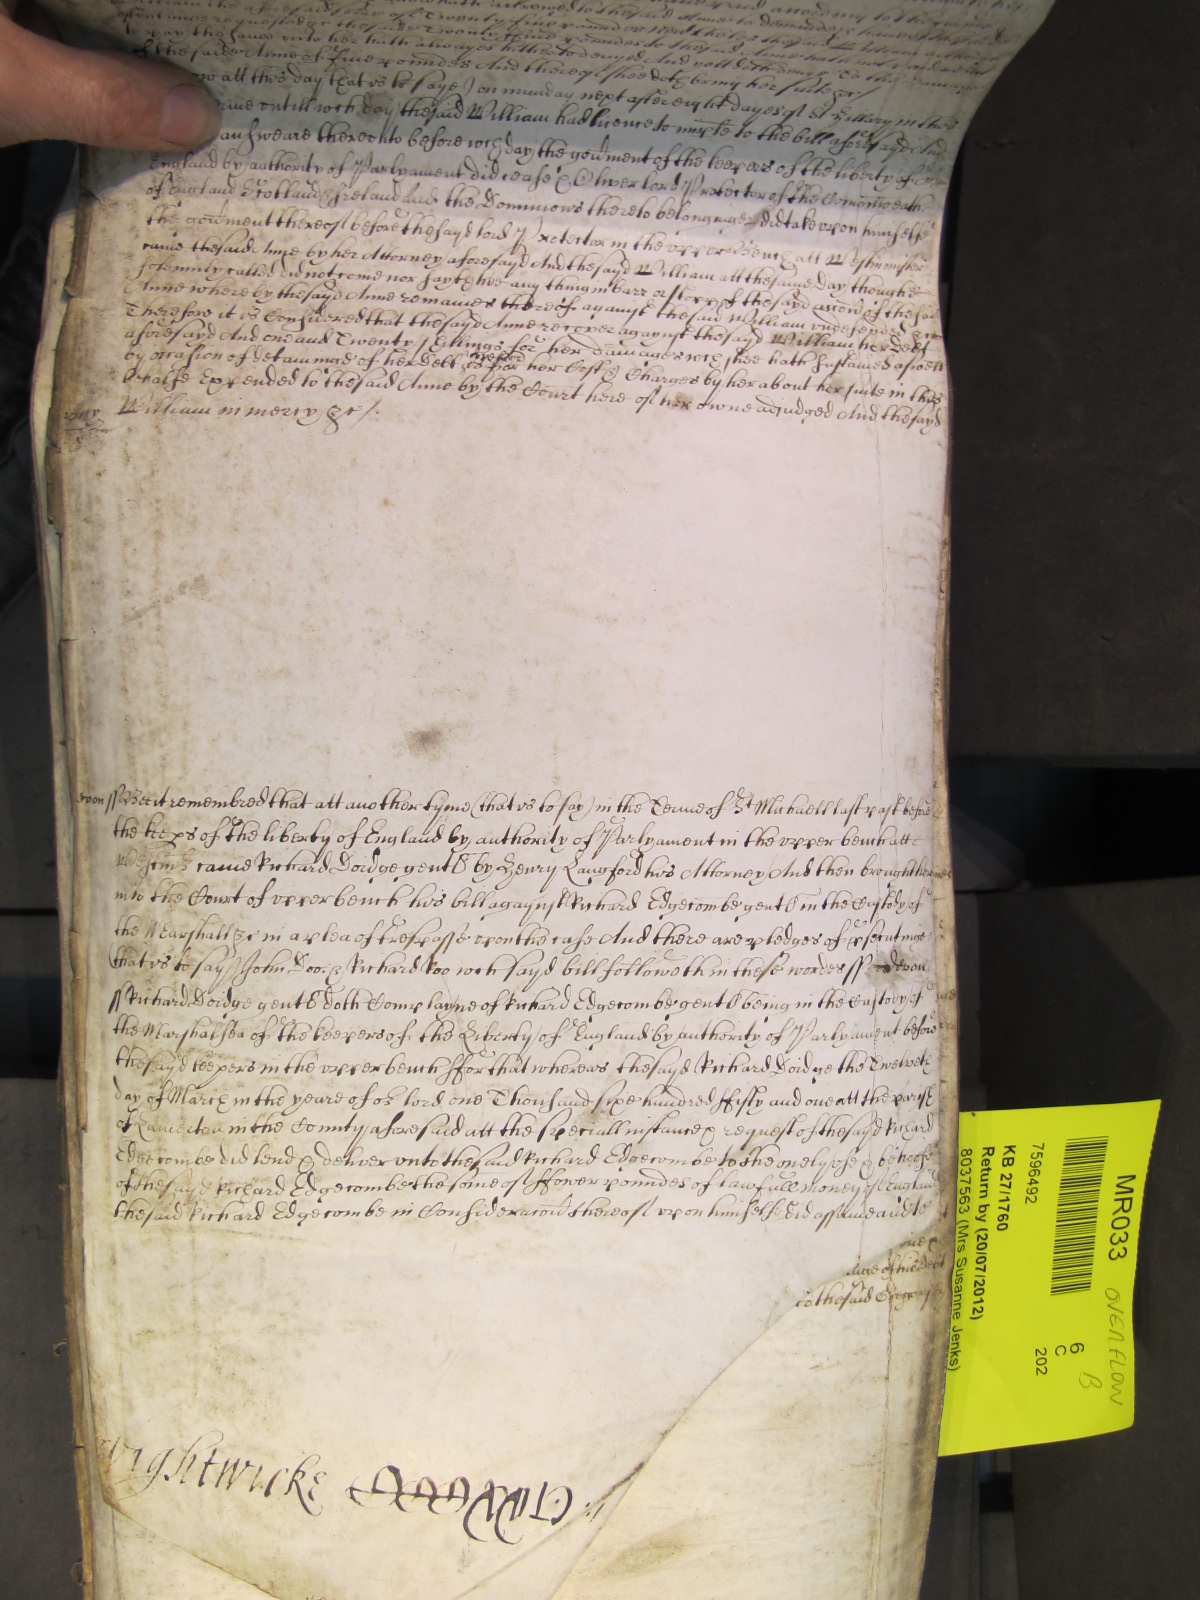 William the aforesaid some of Twenty five poundes
oftentimes requested &c the said Twenty five poundes to the said Anne hath not rendred but
to pay the same unto her hath alwayes hitherto denyed And yett doth deny To the damage
of the said Anne of five poundes And thereof shee doth bring her suite &c /
now att this day that is to saye) on munday next after eight dayes of St Hillary in this
Terme untill wch day the said William had licence to imparle to the bill aforesayd And
answeare thereunto before wch day the gov̄ment of the keepers of the liberty of
England by authority of Parlyament did cease & Oliver lord Protector of the Com̄onwealth
of England Scotland & Ireland And the Dominions thereto belonginge did take upon himselfe
the gov̄ment thereof before the sayd lord Protector in the upper Bench att Westminster
came the said Anne by her Attorney aforesayd And the sayd William att the same day though
solemnly called did not come nor sayth hee any thing in barr or stopp of the sayd accōn of the said
Anne whereby the sayd Anne remaines thereof against the said William undefended &c
Therefore it is Considered that the sayd Anne recover against the sayd William her debt
aforesayd And one and Twenty shillings for her damages wch shee hath sustained aswell
by occasion of detaininge of her debt as for her Costs & Charges by her about her suite in this
behalfe Expended to the said Anne by the Court here of her owne adjudged And the sayd
mercy William in mercy &c /.
Devon ss Bee it remembred that att another tyme (that is to say) in the Terme of St Michaell last past before
the keeps of the liberty of England by authority of Parlyament in the upper bench att
Westmr came Richard Doidge gent by Henry Langford his Attorney And then brought there
into the Court of upper bench his bill against Richard Edgecombe gent in the Custody of
the Marshall &c in a plea of trespasse upon the case And there are pledges of psecutinge
(that is to say) John Doo & Richard Roo wch sayd bill followeth in these wordes ss Devon
ss Richard Doidge gent doth Complayne of Richard Edgecombe gent being in the Custody of
the Marshalsea of the keepers of the Liberty of England by authority of Parlyament before
the sayd keepers in the upper bench ffor that whereas the sayd Richard Doidge the Twelveth
day of March in the yeare of or lord one Thousand sixe hundred ffifty and one att the parish
of Lamerton in the County aforesaid att the speciall instance & request of the sayd Richard
Edgecombe did lend & deliver unto the said Richard Edgecombe to the onely use & behoofe
of the sayd Richard Edgecombe the some of ffower poundes of lawfull money of England
the said Richard Edgecombe in Consideracōn thereof upon himselfe did assume and to
to the said
Wightwicke
MR033 OVERFLOW
6 B
C
202
7596492
KB 27/1760
Return by (20/07/2012)
8037563 (Mrs Susanne Jenks)